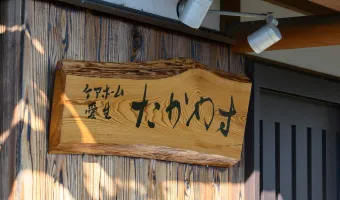 ケアホーム
愛生
たかやす